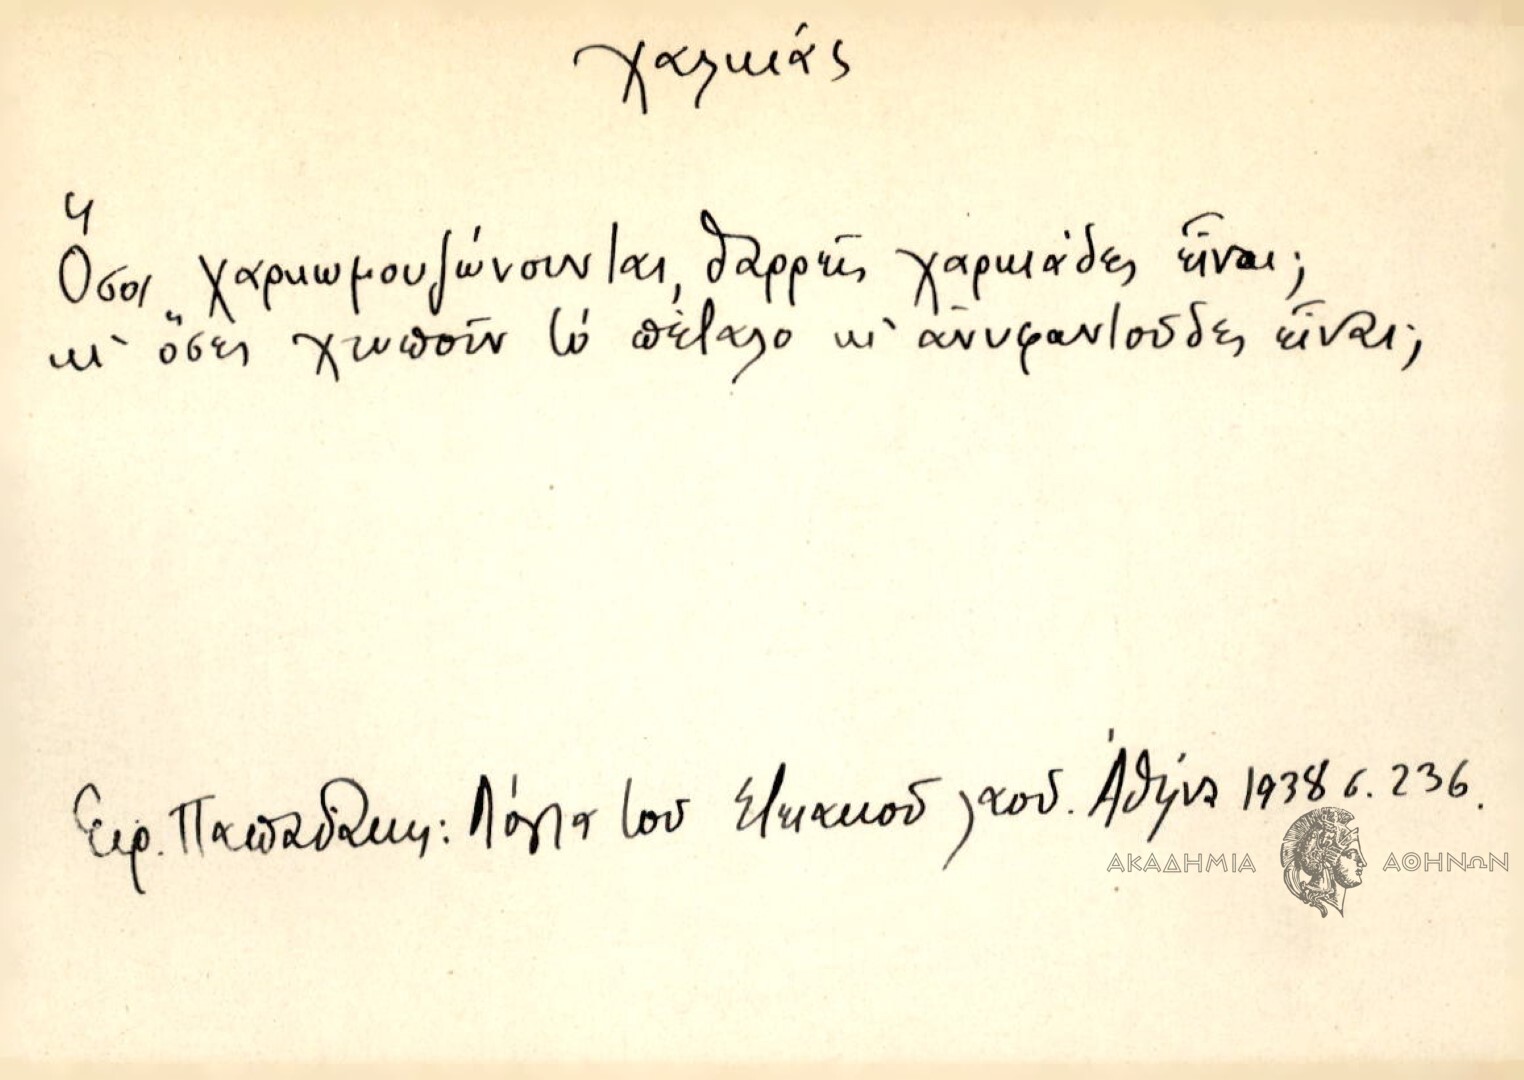 χαλκιάς
Ὅσοι χαρκωμουζώνουνται, θαρρεῖς χαρκιάδες εἶναι;
κι' ὅσες χτυποῦν τό πέταλο κι' ἀνυφαντοῦδες εἶναι;
Εἰρ. Παπαδάκη: Λόγια τοῦ Στειακοῦ λαοῦ. Ἀθήνα 1938 σ. 236.
ΑΚΑΔΗΜΙΑ ΑΘΗΝΩΝ